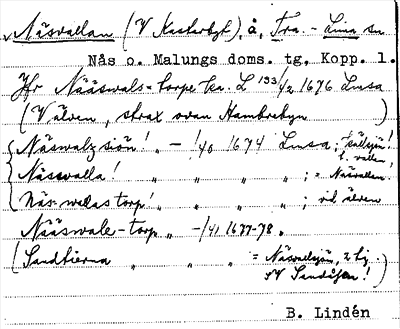 Näsvallan (V Kastarbyt), å, Tra. - Lima sn
Nås o. Malungs doms. tg, Kopp. l.
Jfr Nääswals-torpe ka. L 193/2 1676 Limsa
(V älven, strax ovan Hambrebyn)
(Näswalz siön! „ - /40 1674 Limsa; 
Näswalla! „ „ „ „ ; = Näsvallen.
Näs-wallas torp! „ „ „ „ ; vid älven
Nääswale-torp „ -/41 1677-78 „
(Sandtierna „ „ „ = Näsvallsjön, 2 kj.
V Sandsjön!)
B. Lindén